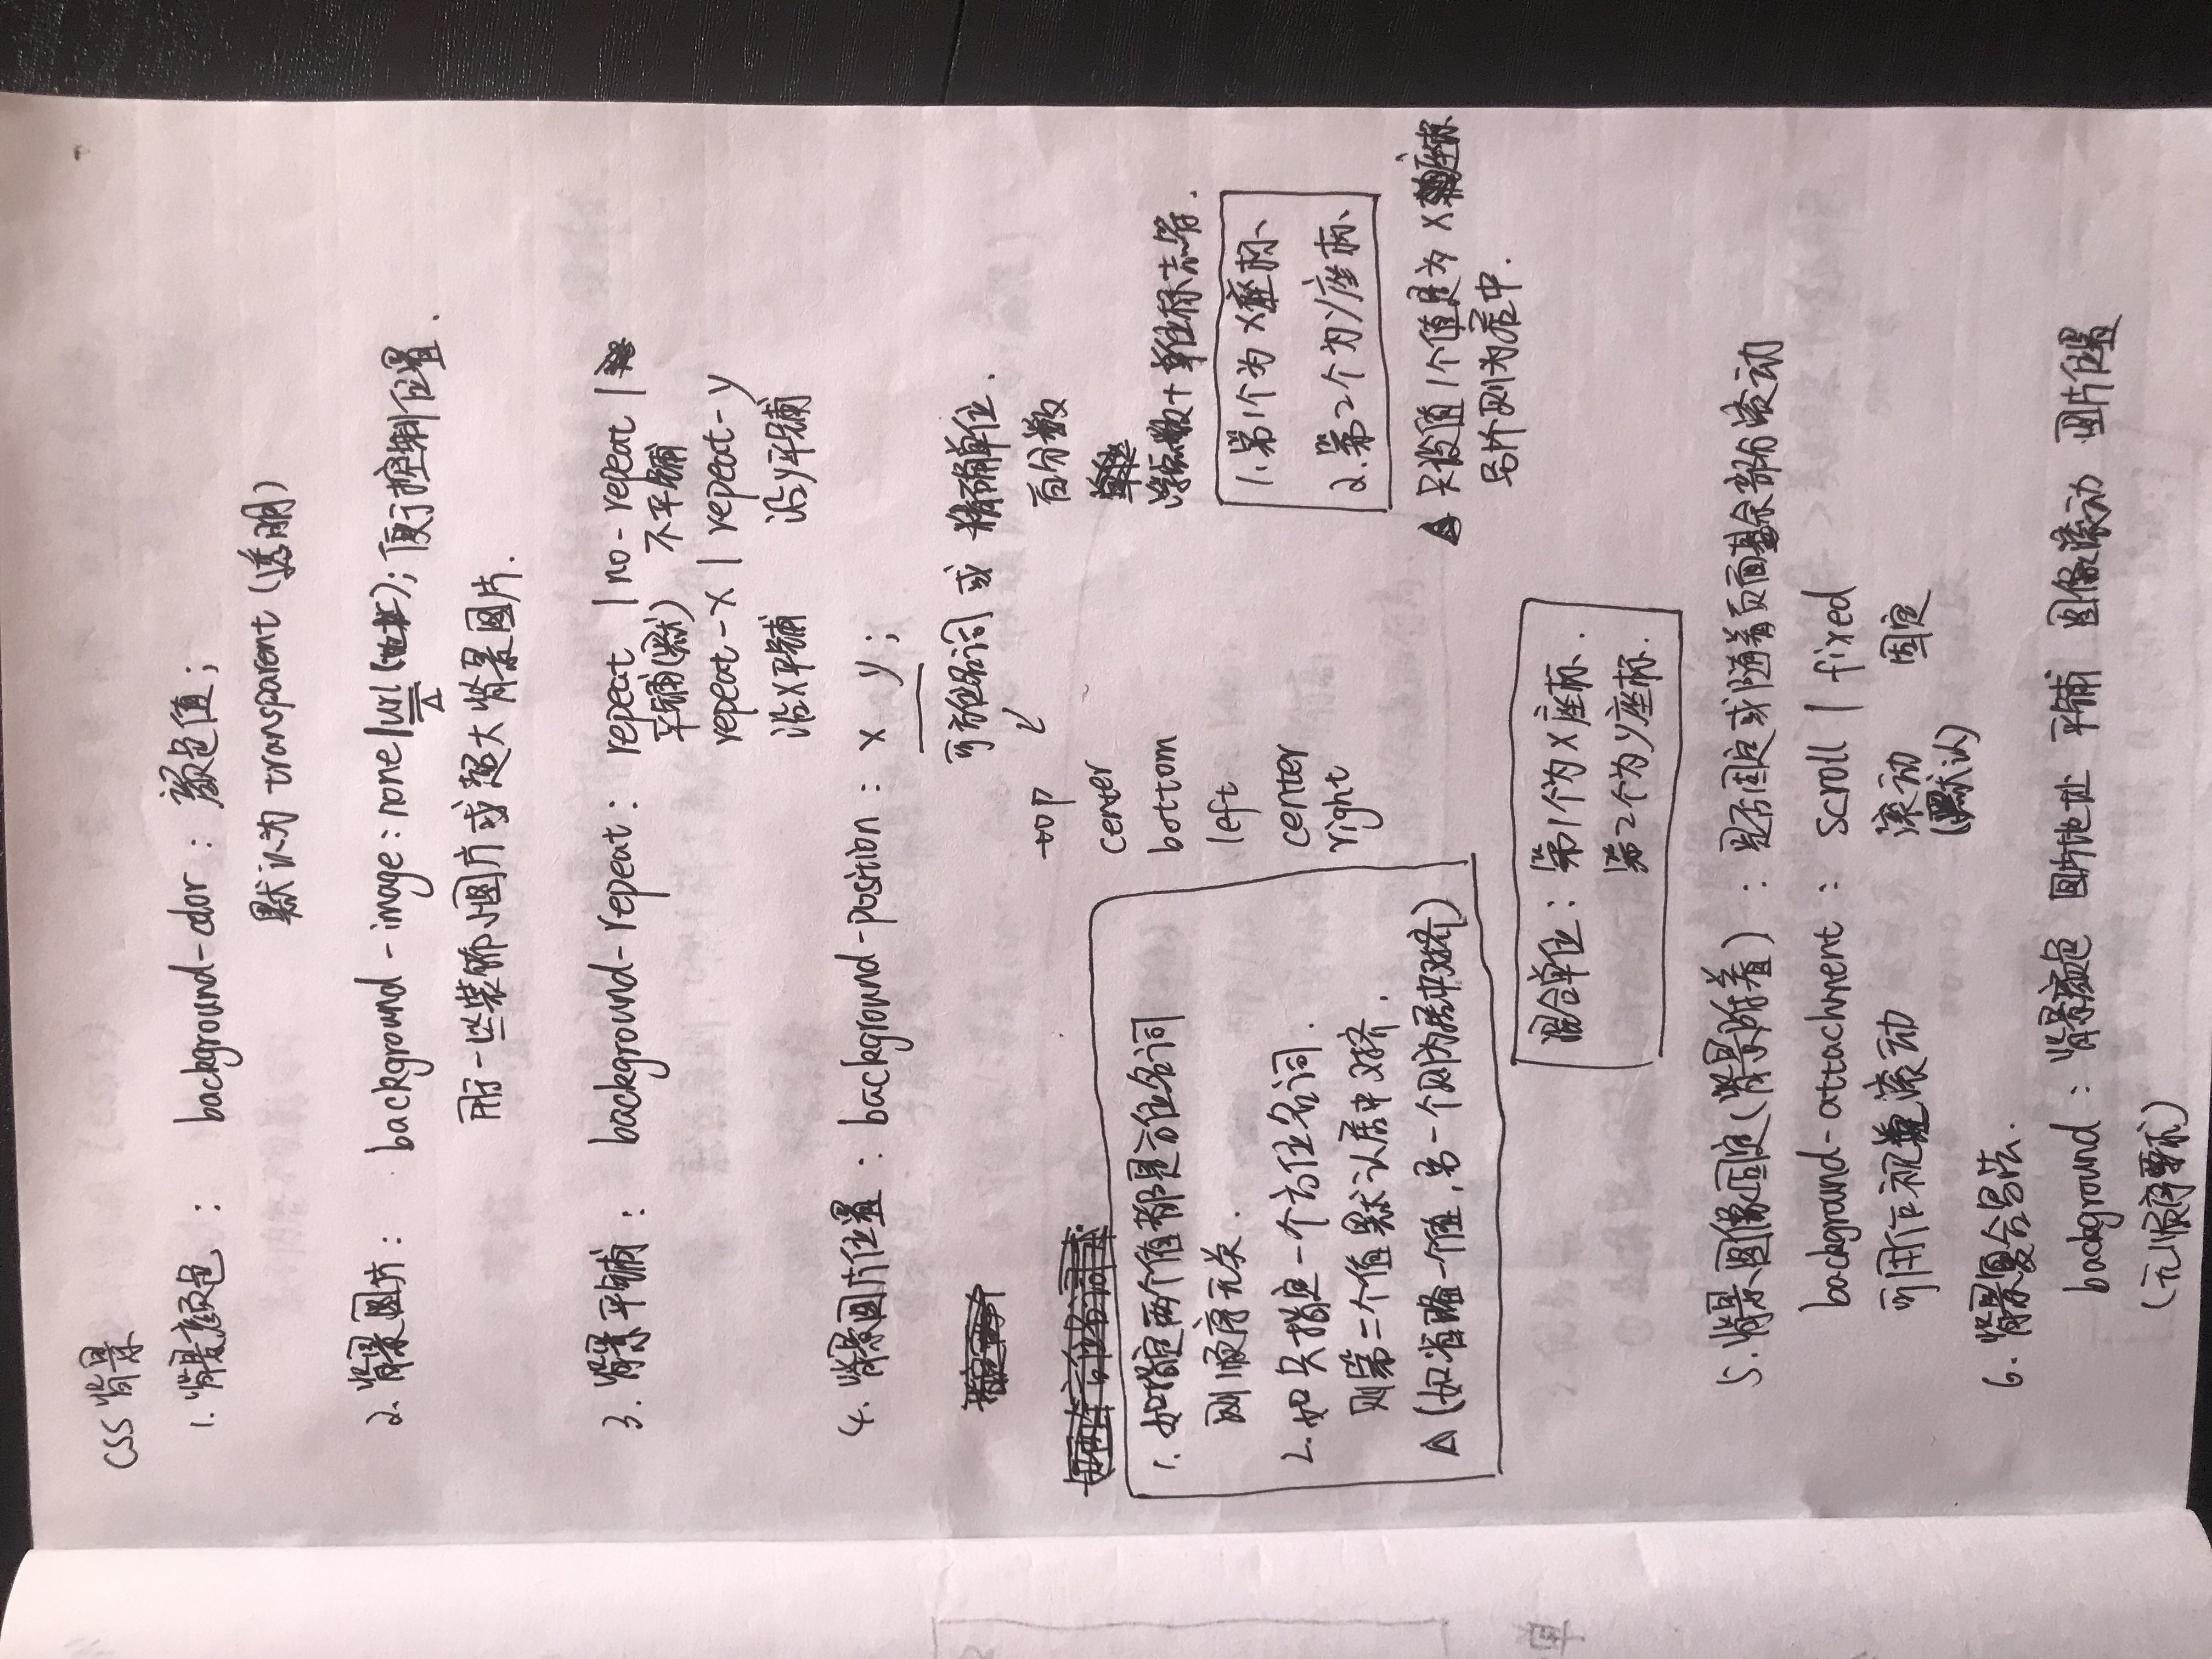 CSS 背景
1. 背景颜色 : background-color : 颜色值;
默认为 transparent (透明)
2. 背景图片 : background - image : none | url (地址); 便于控制位置.
△
用于一些装饰小图片或超大背景图片.
3. 背景平铺 : background-repeat : repeat | no-repeat |
平铺(默) 不平铺
repeat-x | repeat-y
沿X平铺 沿y平铺
4. 背景图片位置 : background-position : x y ;
可方位名词 或 精确单位.
top
center
bottom
left
center
right
百分数
浮点数+单位标志符.
1. 如指定两个值都是方位名词
则顺序无关.
2. 如只指定一个方位名词.
则第二个值默认居中对齐.
△ (如省略一个值, 另一个则为居中对齐)
1. 第1个为X座标、
2. 第2个为y座标、
△ 只设值1个值是为X座标
另外则为居中.
混合单位 : 第1个为X座标.
第2个为y座标.
5. 背景图像固定 (背景附着) : 是否固定或随着页面其余部分滚动
background-attachment : scroll | fixed
可用作视差滚动 滚动 固定
(默认)
6. 背景复合写法.
background : 背景颜色 图片地址 平铺 图像滚动 图片位置
(无顺序要求)